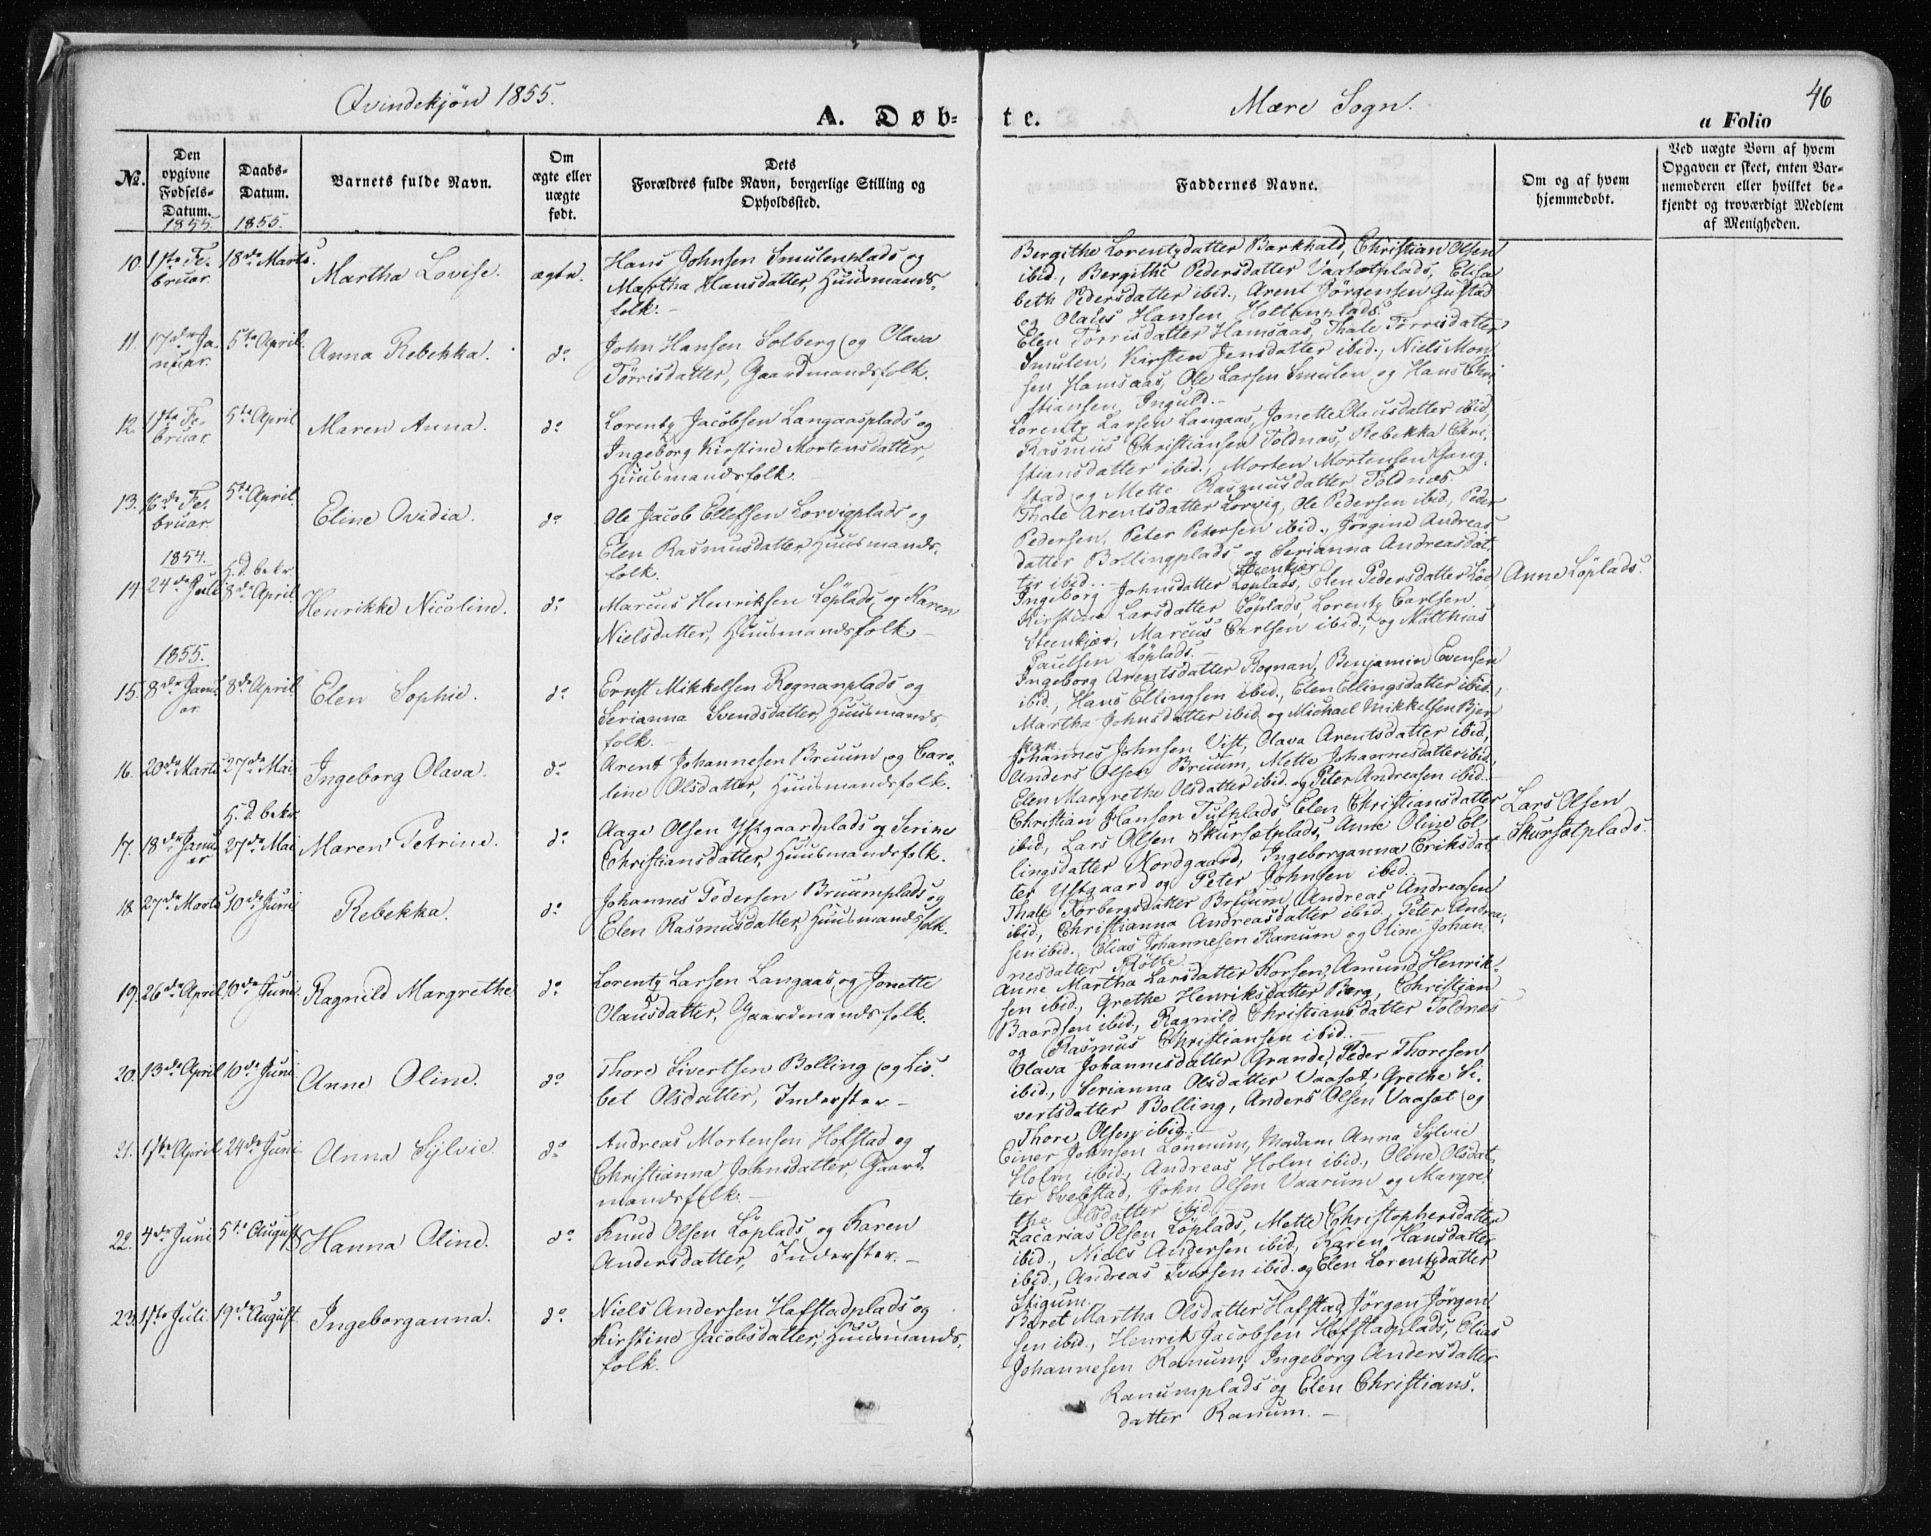 Qvindekjøn 1855.
A. Døb-
te.
Mære Sogn.
46
a Folio
No.
Den opgivne Fødsels-Datum.
1855.
Daabs-Datum.
1855.
Barnets fulde Navn.
Om ægte eller uægte født.
Dets Forældres fulde Navn, borgerlige Stilling og Opholdssted.
Faddernes Navne.
Om og af hvem hjemmedøbt.
Ved uægte Børn af hvem Opgaven er skeet, enten Barnemoderen eller hvilket bekjendt og troværdigt Medlem af Menigheden.
10. 11te Februar. 18de Marts. Martha Lovise. ægte.
Hans Johnsen Smulenplads og
Martha Hansdatter, Huusmands-
folk.
Bergithe Lorentzdatter Barkhald, Christian Olsen
ibid., Bergithe Pedersdatter Vaasetplads, Elisa-
beth Pedersdatter ibid., Arent Jörgensen Gustad
og Olaus Hansen Holtenplads.
11. 17de Januar. 5te April. Anna Rebekka. do
John Hansen Solberg og Olava
Törrisdatter, Gaardmandsfolk.
Elen Törrisdatter Hamsaas, Thale Törrisdatter
Smulen, Kirsten Jensdatter ibid., Niels Mon-
sen Hamsaas, Ole Larsen Smulen og Hans Chri-
stiansen Inguld.
12. 1ste Februar. 5te April Maren Anna. do
Lorentz Jacobsen Langaasplads og
Ingeborg Kirstine Mortensdatter,
Huusmandsfolk.
Lorentz Larsen Langaas, Jonette Olausdatter ibid,
Rasmus Christiansen Toldnæs, Rebekka Chri-
stiansdatter ibid., Morten Mortensen Gang-
stad og Mette Rasmusdatter Toldnæs.
13. 16de Februar. 5te April. Eline Ovidia. do
Ole Jacob Ellefsen Lorvigplads og
Elen Rasmusdatter, Huusmands-
folk.
Thale Arentsdatter Lorvig, Ole Pedersen ibid., Peder
Pedersen, Peter Petersen ibid., Jörgine Andreas-
datter Bollingplads og Serianna Andreasdat-
ter ibid.
1854.
H.d. bekr.
14. 24de Juli 8de April. Henrikke Nicoline. do
Marcus Henriksen Löplads og Karen
Nielsdatter, Huusmandsfolk.
Steenkjer
Ingeborg Johnsdatter Löplads, Elen Pedersdatter Löe,
Kirstine Larsdatter Löplads, Lorentz Carlsen
Steenkjær, Marcus Carlsen ibid., og Matthias
Paulsen Löplads.
Anne Löplads.
1855.
15. 8de Januar. 8de April Elen Sophie. do
Ernst Mikkelsen Rognanplads og
Serianna Svendsdatter, Huusmands-
folk.
Ingeborg Arentsdatter Rognan, Benjamin Evensen
ibid., Hans Ellingsen ibid., Elen Ellingsdatter ibid.,
Martha Johnsdatter ibid og Michael Mikkelsen Bjer-
kan
16. 20de Marts 27de Mai Ingeborg Olava. do
Arent Johannesen Bruum og Caro-
line Olsdatter, Huusmandsfolk.
Johannes Johnsen Vist, Olava Arentsdatter ibid,
Anders Olsen Bruum, Mette Johannesdatter ibid.,
Elen Margrethe Olsdatter ibid. og Peter Andreasen ibid.
H.d. bekr
17. 18de Januar 27de Mai Maren Petrine. do
Aage Olsen Ystgaardplads og Serine
Christiansdatter, Huusmandsfolk.
Christian Hansen Tulplads, Elen Christiansdatter
ibid, Lars Olsen Skursetplads, Anne Oline El-
lingsdatter Nordgaard, Ingeborganna Eriksdat-
ter Ystgaard og Peter Johnsen ibid.
Lars Olsen
Skursetplads.
18. 27de Marts 10de Juni Rebekka. do
Johannes Pedersen Bruumplads og
Elen Rasmusdatter, Huusmandsfolk.
Thale Torbergsdatter Bruum, Andreas Andreasen
ibid, Christianna Andreasdatter ibid. Peter Andrea-
sen ibid., Elias Johannesen Ranum og Oline Johan-
nesdatter Stötte.
19. 26de April 10de Juni. Ragnild Margrethe do
Lorentz Larsen Langaas og Jonette
Olausdatter, Gaardmandsfolk.
Anne Martha Larsdatter Korsen, Amund Henrik-
sen ibid., Grethe Henriksdatter Berg, Christian
Baardsen ibid, Ragnild Christiansdatter Toldnæs
og Rasmus Christiansen ibid.
20. 13de April 10de Juni. Anne Oline. do
Thore Sivertsen Bolling og Lis-
bet Olsdatter, Inderster.
Olava Johannesdatter Grande, Peder Thoresen
ibid., Serianna Olsdatter Vaaset, Grethe Si-
vertsdatter Bolling, Anders Olsen Vaaset og
Thore Olsen ibid.
21. 17te April 24de Juni Anna Sylvie. do
Andreas Mortensen Hofstad og
Christianna Johnsdatter, Gaard-
mandsfolk.
Einer Johnsen Lönnum, Madam Anna Sylvie
Holm ibid, Andreas Holm ibid., Oline Olsdat-
ter Svebstad, John Olsen Vaarum og Margre-
the Olsdatter ibid.
22. 4de Juni 5te August Hanna Oline. do
Knud Olsen Löplads og Karen
Andersdatter, Inderster.
Zacarias Olsen Löplads, Mette Christophersdatter
ibid., Niels Andersen ibid, Karen Hansdatter
ibid., Andreas Iversen ibid. og Elen Lorentzdatter
Stigum.
23. 17te Juli. 19de August. Ingeborganna. do
Niels Andersen Hafstadplads og
Kirstine Jacobsdatter, Huusmands-
folk.
Beret Martha Olsdatter Hafstad, Jörgen Jörgen-
sen ibid., Henrik Jacobsen Hofstadplads, Elias
Johannesen Ranum, Ingeborg Andersdatter
Ranumplads og Elen Christians-
datter Ranum.